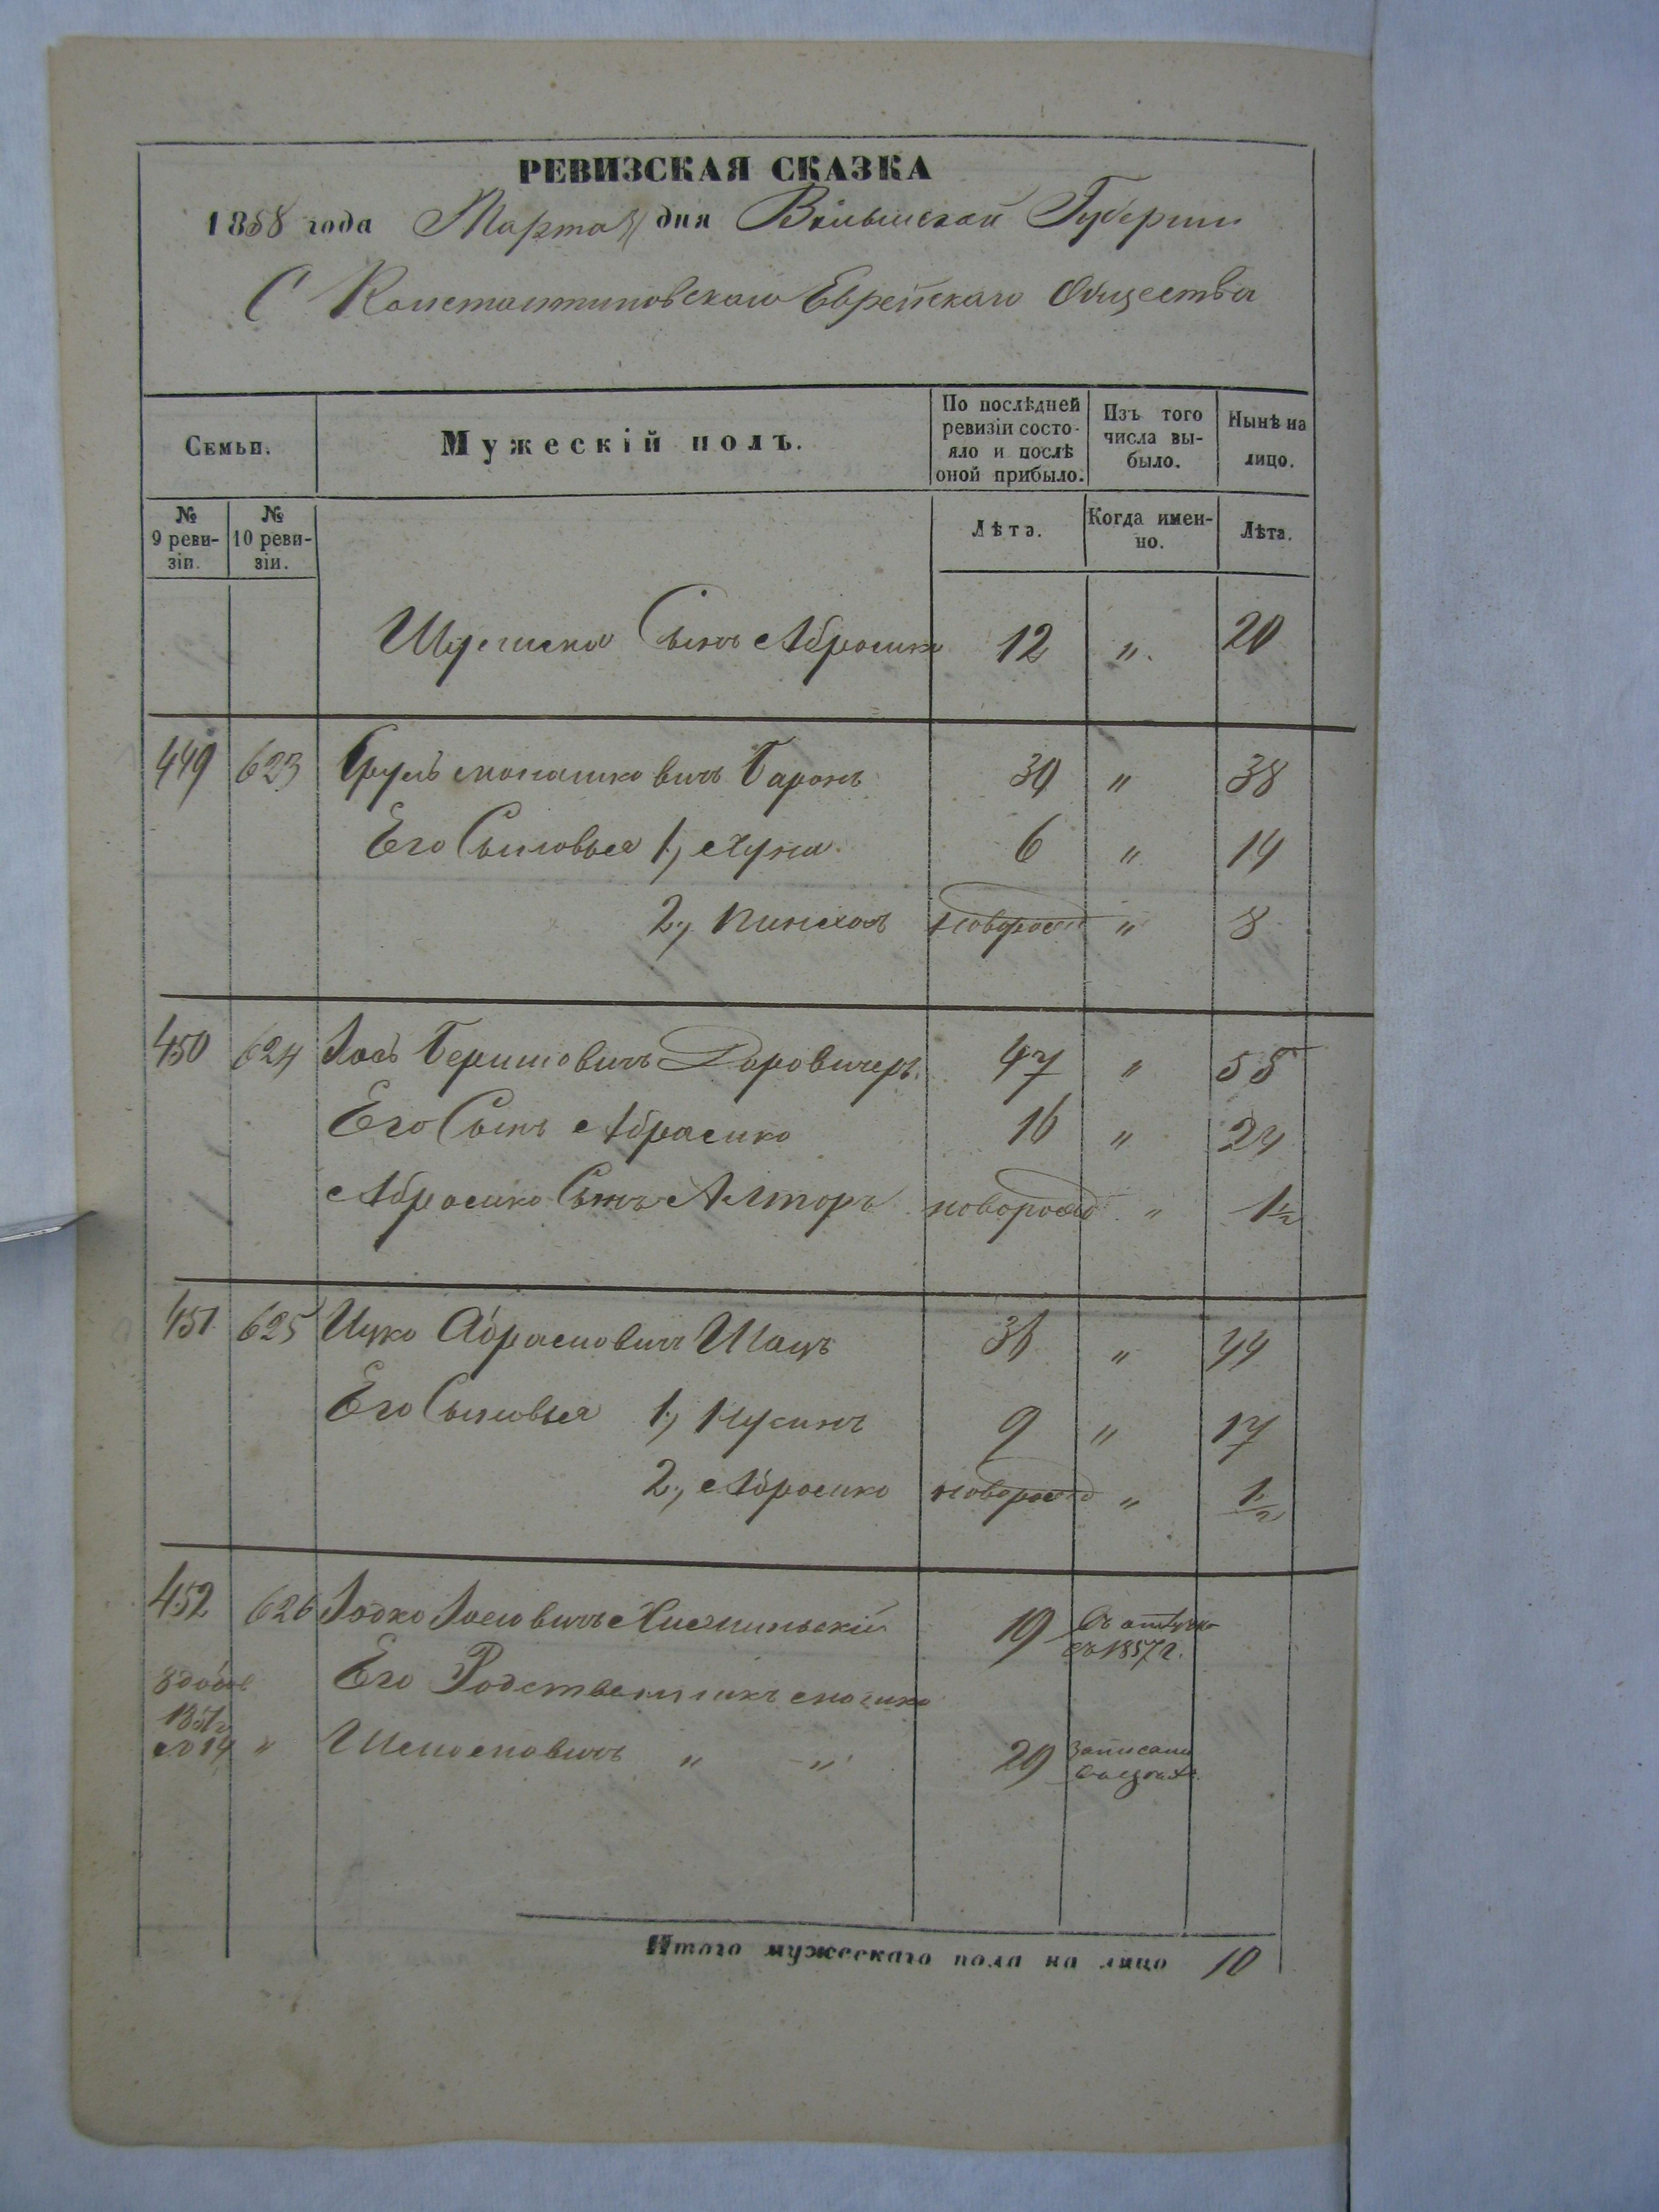 РЕВИЗСКАЯ СКАЗКА
1858 года Марта дня Волынской Губернии
С Константиновскаго Еврейскаго Общества
Семьи.
Мужескій полъ.
По послѣдней ревизіи состо-
яло и послѣ оной прибыло.
Изъ того числа вы-
было.
Нынѣ на лицо.
№ 9 реви-
зіи.
№ 10 реви-
зіи.
Лѣта.
Когда имен-
но.
Лѣта.
Сынъ Абрамко 12 „ 20
449 623 Сруль Мошковичъ Баронъ 30 „ 38
Его Сыновья 1, Хуна 6 „ 14
2, Пинхасъ новорожд „ 8
450 624 Іось Беришовичъ 47 „ 55
Его Сынъ Абрамко 16 „ 24
Абрамко Сынъ Алторъ новорожд „ 1½
451 625 Ицко Абрамовичъ Шацъ 36 „ 44
Его Сыновья 1, Нусинъ 9 „ 17
2, Абрамко новорожд „ 1½
452 626 Іосковичъ Хмельницкій 19 Въ отлучке
съ 1857 г.
Его Родственникъ Мошко
1851 г
№ 14 „ „ „ 29 записанъ
Итого мужескаго пола на лицо 10